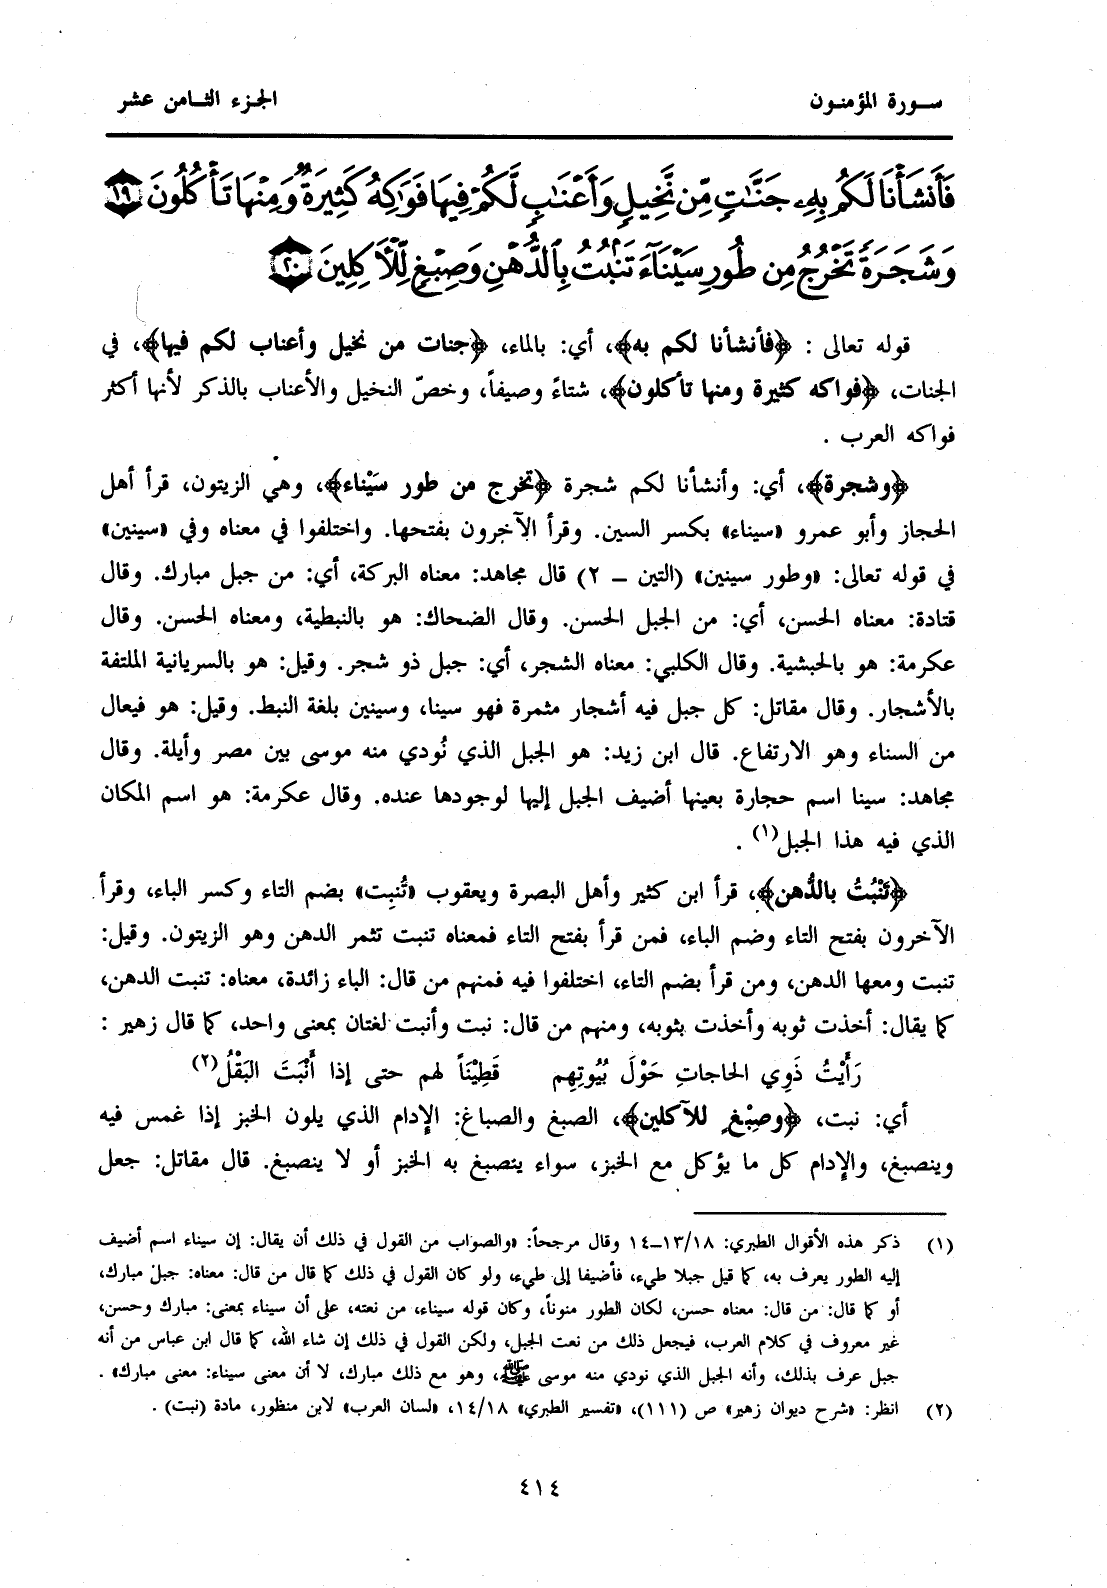 سورة المؤمنون
الجزء الثامن عشر
فَأَنشَأْنَا لَكُم بِهِۦ جَنَّٰتٍ مِّن نَّخِيلٍ وَأَعْنَٰبٍ لَّكُمْ فِيهَا فَوَٰكِهُ كَثِيرَةٌ وَمِنْهَا تَأْكُلُونَ ١٩
وَشَجَرَةً تَخْرُجُ مِن طُورِ سَيْنَآءَ تَنۢبُتُ بِٱلدُّهْنِ وَصِبْغٍ لِّلْآكِلِينَ ٢٠
قوله تعالى : ﴿فأنشأنا لكم به﴾، أي: بالماء، ﴿جنات من نخيل وأعناب لكم فيها﴾، في
الجنات، ﴿فواكه كثيرة ومنها تأكلون﴾، شتاءً وصيفاً، وخصّ النخيل والأعناب بالذكر لأنها أكثر
فواكه العرب .
﴿وشجرة﴾، أي: وأنشأنا لكم شجرة ﴿تخرج من طور سَيْناء﴾، وهي الزيتون، قرأ أهل
الحجاز وأبو عمرو «سيناء» بكسر السين. وقرأ الآخرون بفتحها. واختلفوا في معناه وفي «سينين»
في قوله تعالى: «وطور سينين» (التين ــ ٢) قال مجاهد: معناه البركة، أي: من جبل مبارك. وقال
قتادة: معناه الحسن، أي: من الجبل الحسن. وقال الضحاك: هو بالنبطية، ومعناه الحسن. وقال
عكرمة: هو بالحبشية. وقال الكلبي: معناه الشجر، أي: جبل ذو شجر. وقيل: هو بالسريانية الملتفة
بالأشجار. وقال مقاتل: كل جبل فيه أشجار مثمرة فهو سينا، وسينين بلغة النبط. وقيل: هو فيعال
من السناء وهو الارتفاع. قال ابن زيد: هو الجبل الذي نُودي منه موسى بين مصر وأيلة. وقال
مجاهد: سينا اسم حجارة بعينها أضيف الجبل إليها لوجودها عنده. وقال عكرمة: هو اسم المكان
الذي فيه هذا الجبل(١) .
﴿تَنْبُتُ بالدُّهن﴾، قرأ ابن كثير وأهل البصرة ويعقوب «تُنبِت» بضم التاء وكسر الباء، وقرأ
الآخرون بفتح التاء وضم الباء، فمن قرأ بفتح التاء فمعناه تنبت تثمر الدهن وهو الزيتون. وقيل:
تنبت ومعها الدهن، ومن قرأ بضم التاء، اختلفوا فيه فمنهم من قال: الباء زائدة، معناه: تنبت الدهن،
كما يقال: أخذت ثوبه وأخذت بثوبه، ومنهم من قال: نبت وأنبت لغتان بمعنى واحد، كما قال زهير :
رَأَيْتُ ذَوِي الحاجاتِ حَوْلَ بُيُوتِهِم قَطِيْنَاً لهم حتى إذا أَنْبَتَ البَقْلُ(٢)
أي: نبت، ﴿وصِبْغٍ للآكلين﴾، الصبغ والصباغ: الإدام الذي يلون الخبز إذا غمس فيه
وينصبغ، والإدام كل ما يؤكل مع الخبز، سواء ينصبغ به الخبز أو لا ينصبغ. قال مقاتل: جعل
(١) ذكر هذه الأقوال الطبري: ١٣/١٨ــ١٤ وقال مرجحاً: «والصواب من القول في ذلك أن يقال: إن سيناء اسم أضيف
إليه الطور يعرف به، كما قيل جبلا طيء، فأضيفا إلى طيء، ولو كان القول في ذلك كما قال من قال: معناه: جبل مبارك،
أو كما قال: من قال: معناه حسن، لكان الطور منوناً، وكان قوله سيناء، من نعته، على أن سيناء بمعنى: مبارك وحسن،
غير معروف في كلام العرب، فيجعل ذلك من نعت الجبل، ولكن القول في ذلك إن شاء الله، كما قال ابن عباس من أنه
جبل عرف بذلك، وأنه الجبل الذي نودي منه موسى ﷺ، وهو مع ذلك مبارك، لا أن معنى سيناء: معنى مبارك» .
(٢) انظر: «شرح ديوان زهير» ص (١١١)، «تفسير الطبري» ١٤/١٨، «لسان العرب» لابن منظور، مادة (نبت) .
٤١٤